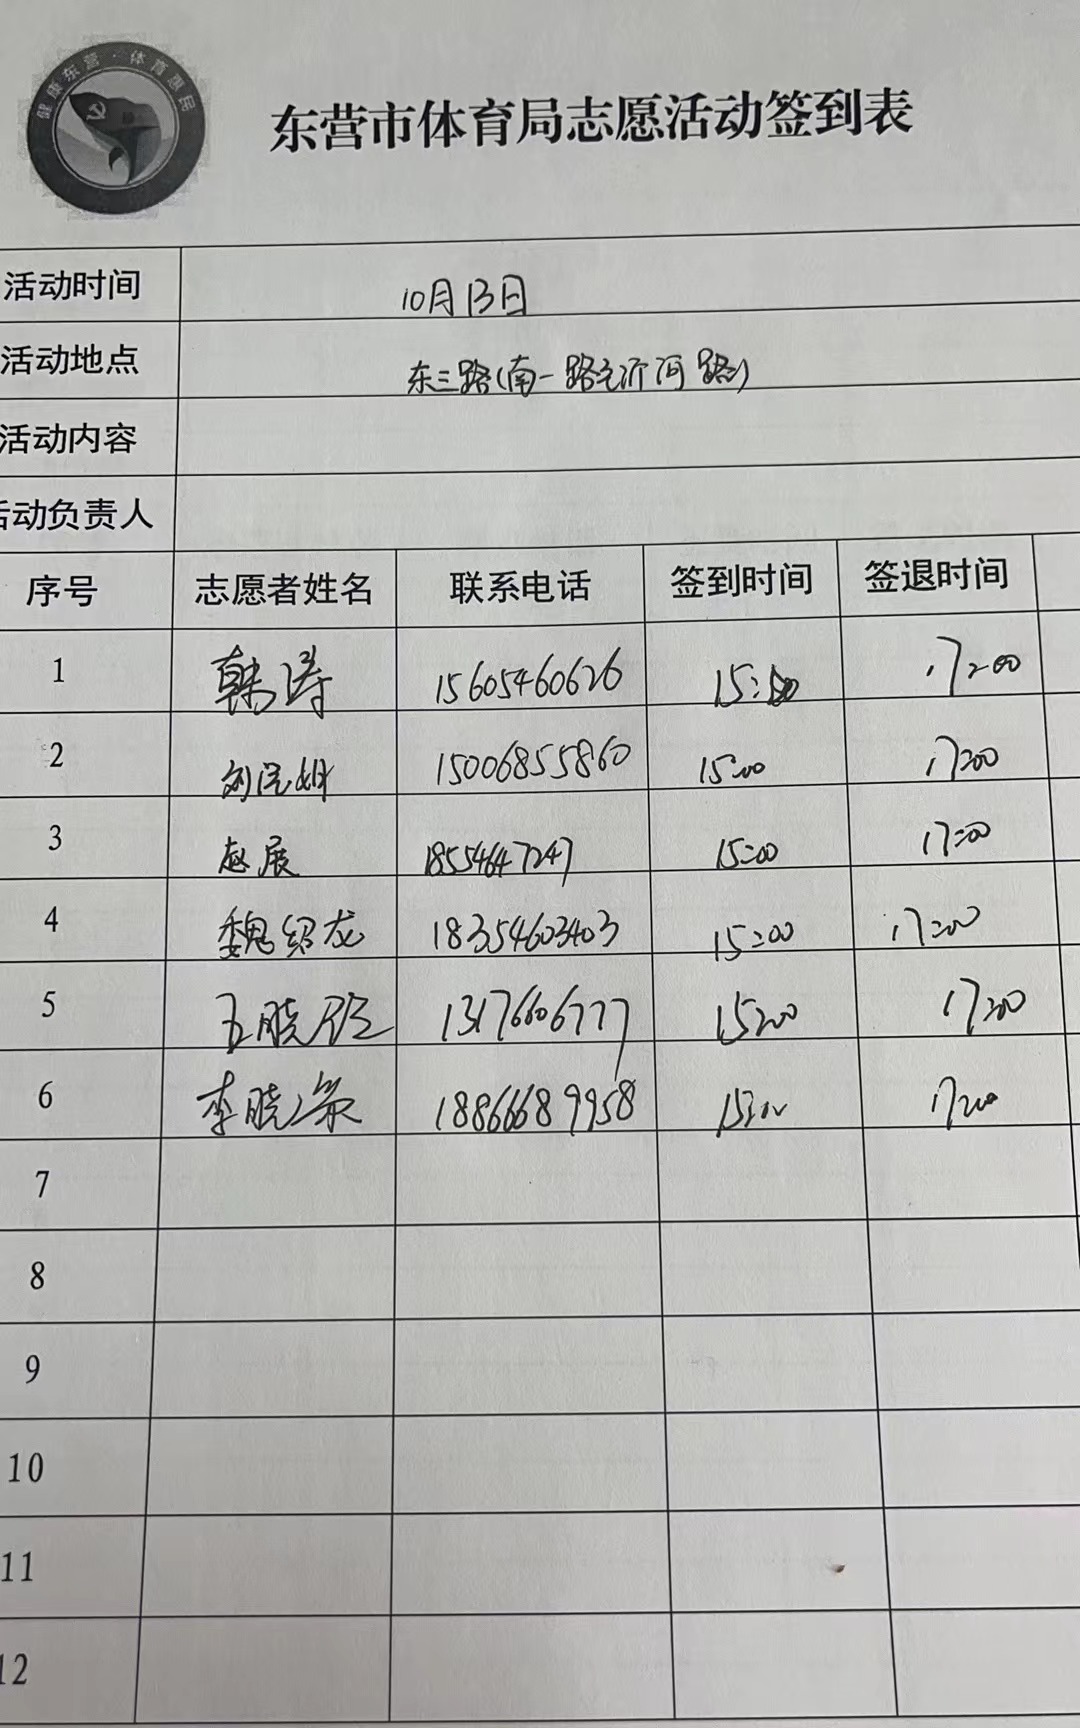 健康东营·体育惠民
东营市体育局志愿活动签到表
活动时间 10月13日
活动地点 东三路(南一路至沂河路)
活动内容
活动负责人
序号 志愿者姓名 联系电话 签到时间 签退时间
1 韩涛 15605460626 15:00 17:00
2 刘 15006855860 15:00 17:00
3 赵展 18554647247 15:00 17:00
4 魏绍龙 18354603403 15:00 17:00
5 王晓 13176606777 15:00 17:00
6 李晓 18866689958 15:00 17:00
7
8
9
10
11
12